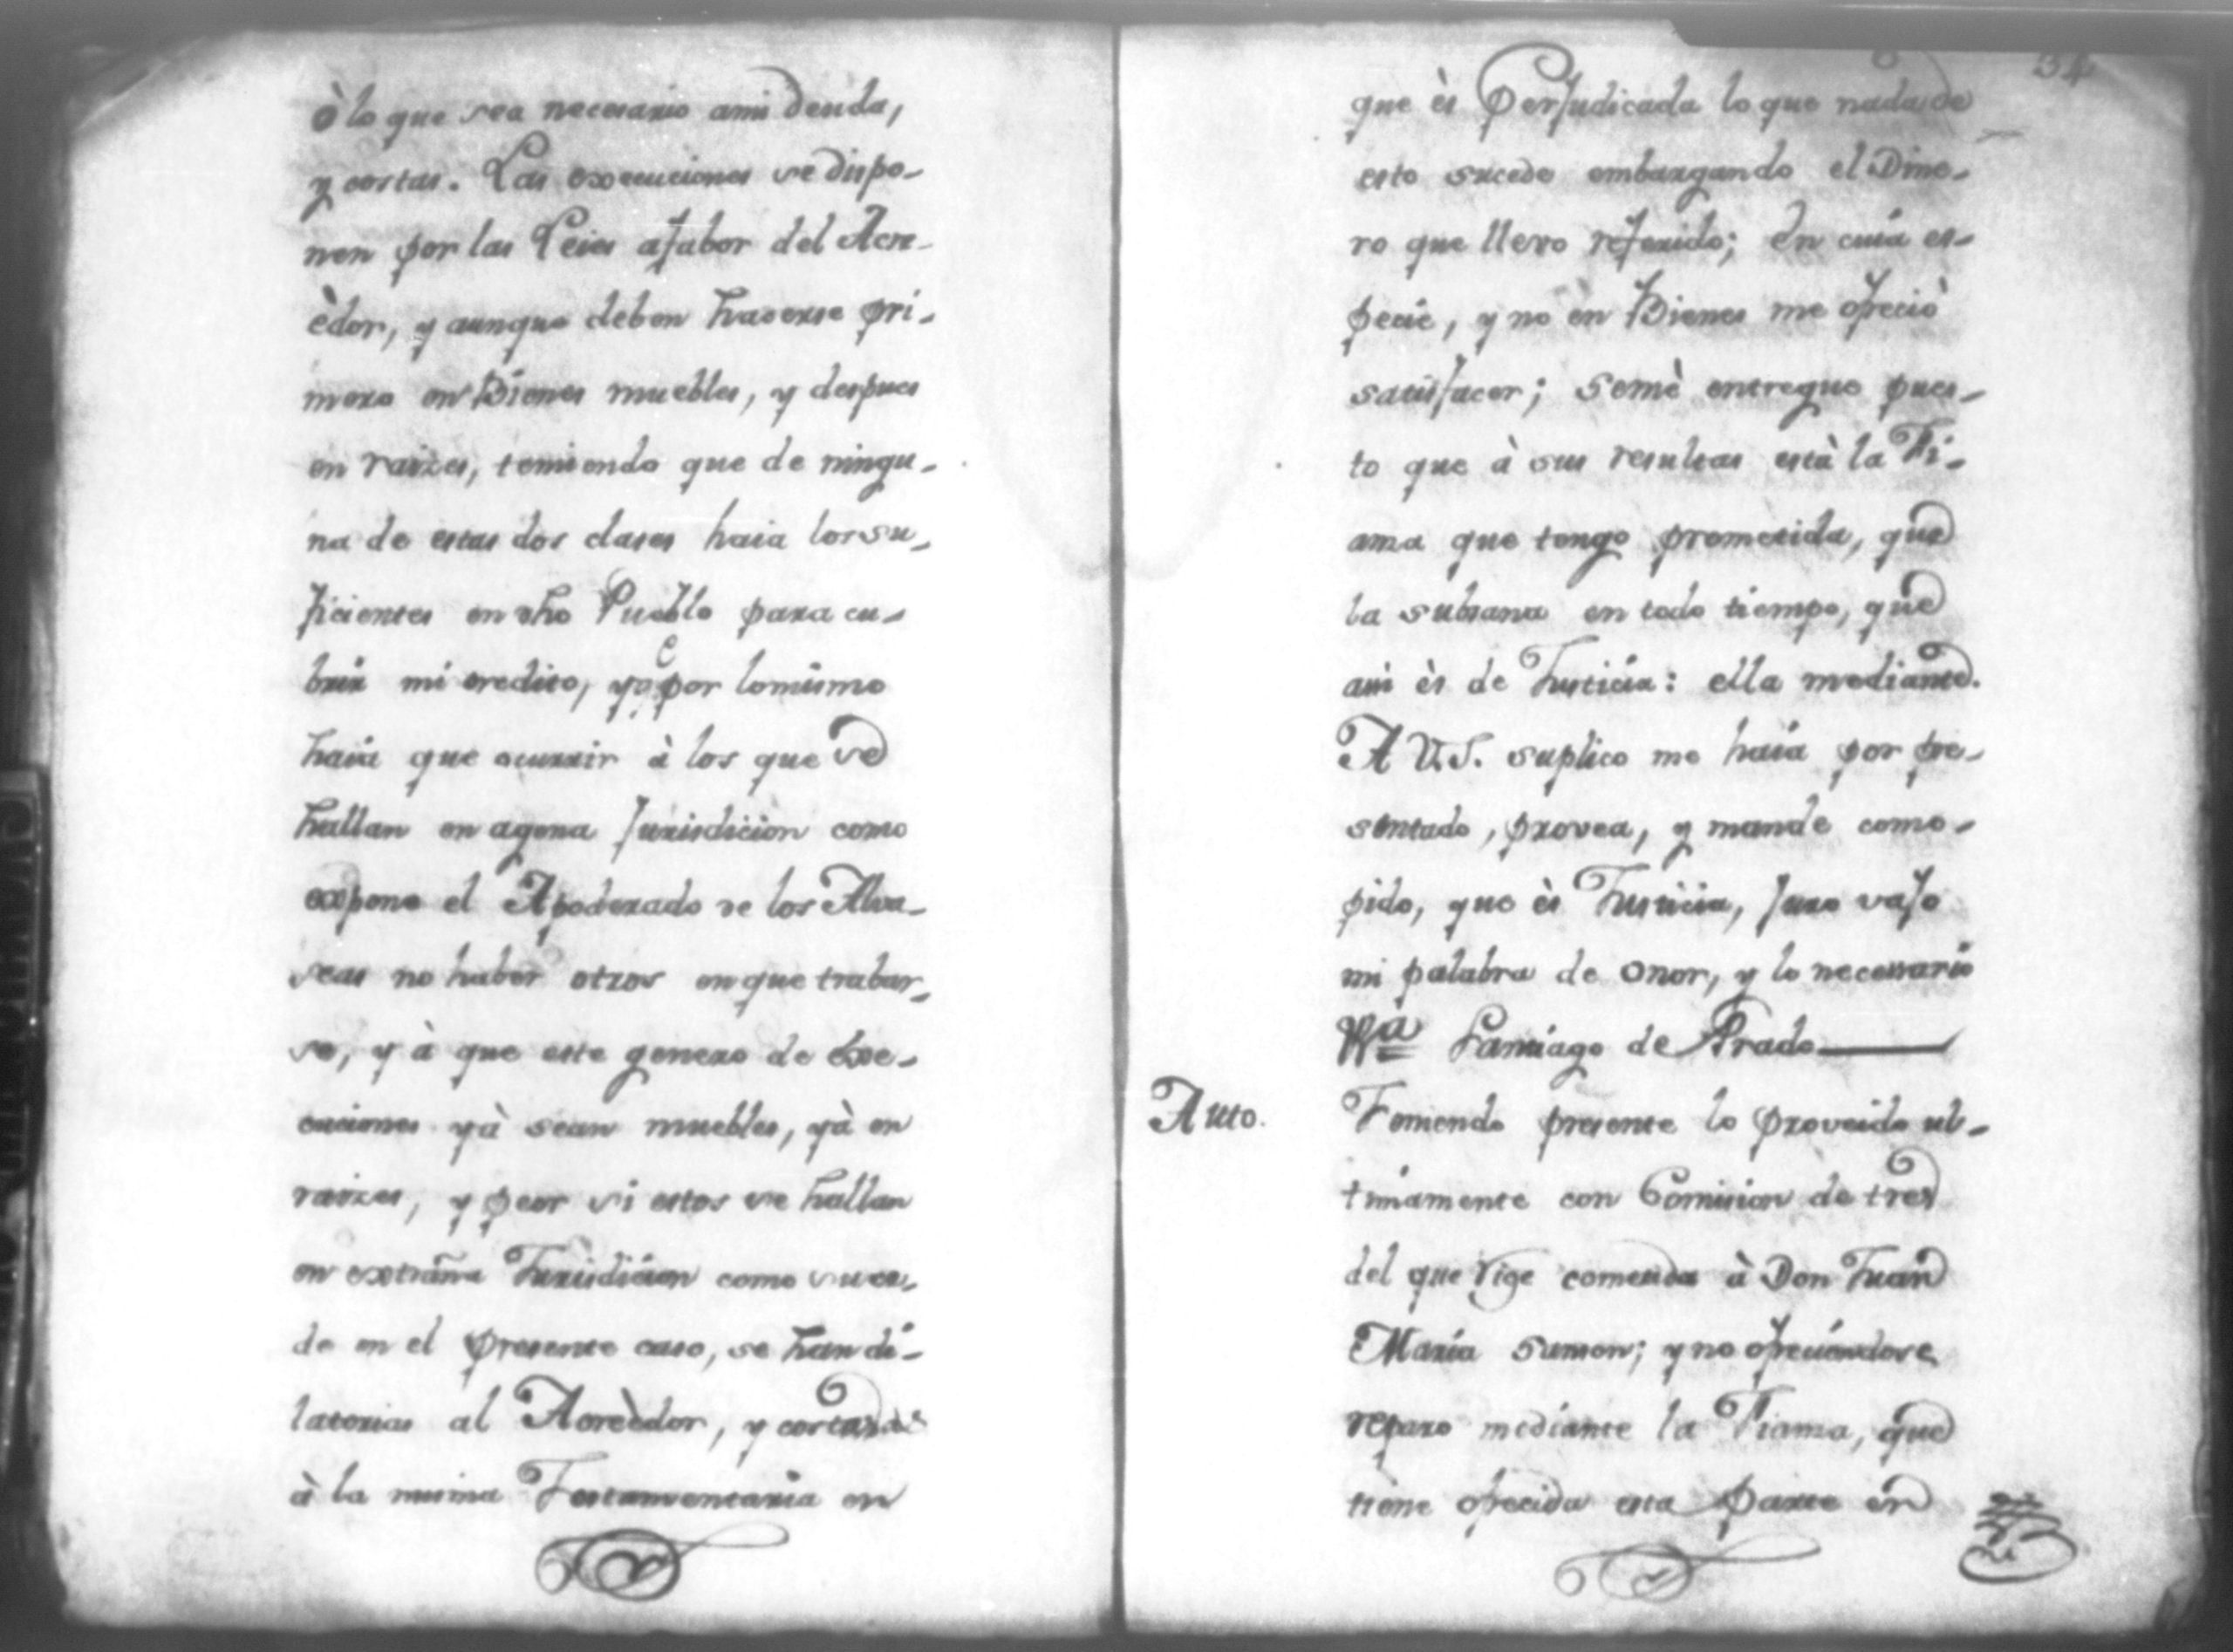 ò lo que sea necesario ami deuda,
y costas. Las execuciones se dispo-
nen por las Leies afabor del Acre-
èdor, y aunque deben haserse pri-
mero en Bienes muebles, y despues
en raizes, temiendo que de ningu-
na de estas dos clases haia los su-
ficientes en dho Pueblo para cu-
brir mi credito, y q.e por lo mismo
haia que ocurrir à los que se
hallan en agena Jurisdicion como
expone el Apoderado de los Alva-
seas no haber otros en que trabar-
se, y à que este genero de Exe-
cuciones yà sean muebles, yà en
raizes, y peor si estos se hallan
en extraña Jurisdicion como suce-
de en el presente caso, se han di-
latorias al Acreèdor, y costosas
à la misma Testamentaria en
34
que ès Perjudicada lo que nada de
esto sucede embargando el Dine-
ro que llevo referido; en cuia es-
pecie, y no en Bienes me ofreciò
satisfacer; se mè entregue pues-
to que à sus resultas està la Fi-
ansa que tengo prometida, que
la subsana en todo tiempo, que
asi ès de Justicia: ella mediante.
A V.S. suplico me haia por pre-
sentado, provea, y mande como
pido, que ès Justicia, Juro vajo
mi palabra de onor, y lo necessario
Santiago de Prado
Auto.
Teniendo presente lo proveido ul-
timamente con Comision de tres
del que rige cometida à Don Juan
Maria Sumon; y no ofreciendose
reparo mediante la Fianza, que
tiene ofrecida esta Parte en